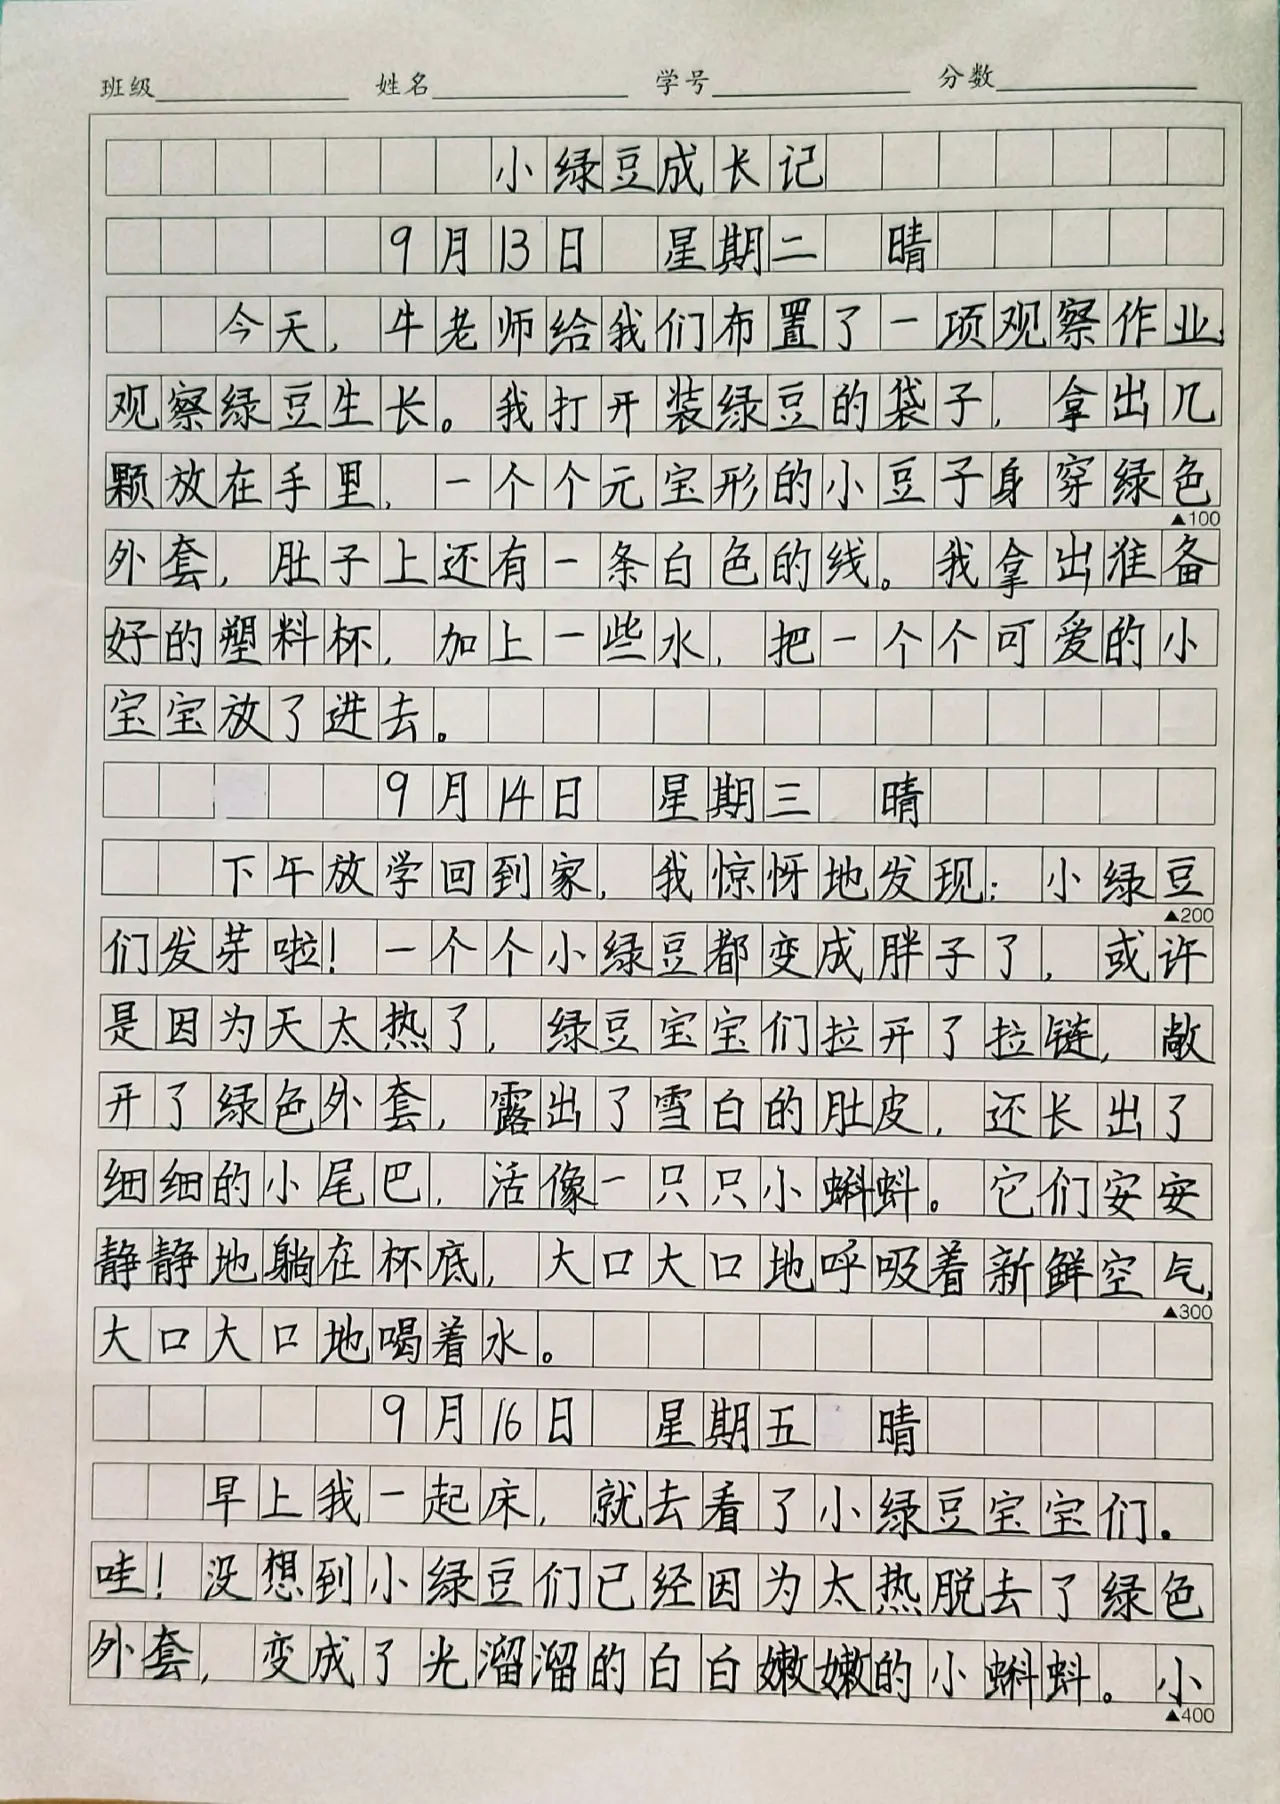 班级 姓名 学号 分数
小绿豆成长记
9月13日 星期二 晴
今天，牛老师给我们布置了一项观察作业，
观察绿豆生长。我打开装绿豆的袋子，拿出几
颗放在手里，一个个元宝形的小豆子身穿绿色
▲100
外套，肚子上还有一条白色的线。我拿出准备
好的塑料杯，加上一些水，把一个个可爱的小
宝宝放了进去。
9月14日 星期三 晴
下午放学回到家，我惊讶地发现：小绿豆
▲200
们发芽啦！一个个小绿豆都变成胖子了，或许
是因为天太热了，绿豆宝宝们拉开了拉链，敞
开了绿色外套，露出了雪白的肚皮，还长出了
细细的小尾巴，活像一只只小蝌蚪。它们安安
静静地躺在杯底，大口大口地呼吸着新鲜空气，
▲300
大口大口地喝着水。
9月16日 星期五 晴
早上我一起床，就去看了小绿豆宝宝们。
哇！没想到小绿豆们已经因为太热脱去了绿色
外套，变成了光溜溜的白白嫩嫩的小蝌蚪。小
▲400